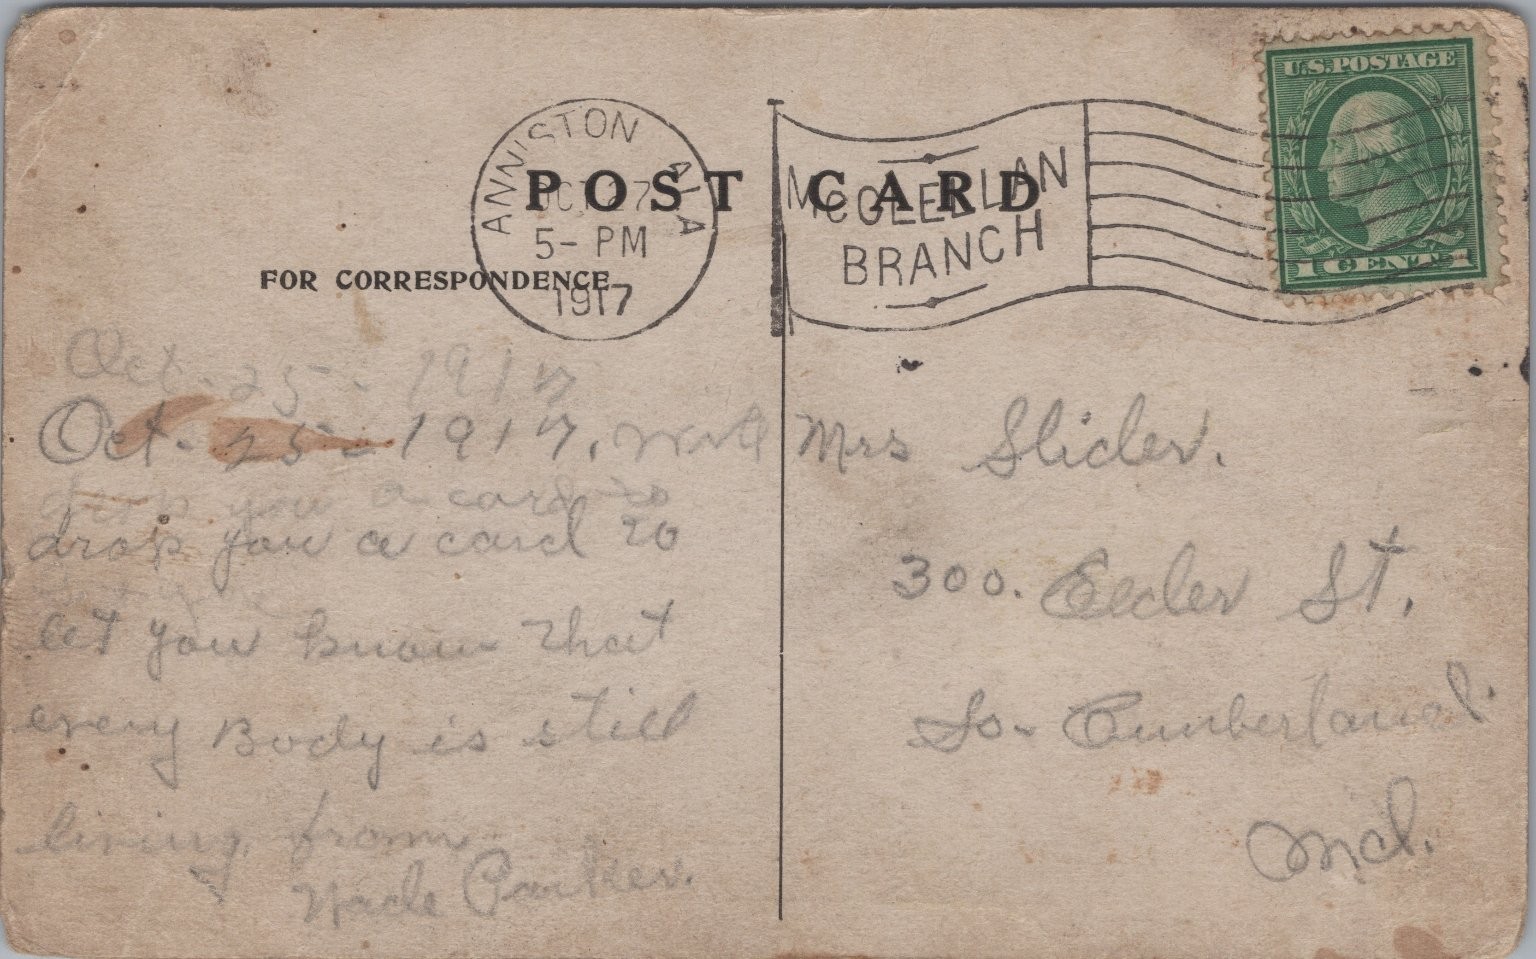 U.S.POSTAGE
1 CENT 1
ANNISTON ALA
OCT 27
5- PM
1917
McCLELLAN
BRANCH
POST CARD
FOR CORRESPONDENCE
Oct - 25 - 1917
Oct - 25 - 1917, will
drop you a card to
drop you a card to
let you know that
every Body is still
living, from
Wade Parker.
Mrs Slider.
300. St,
So- Cumberland.
Md.